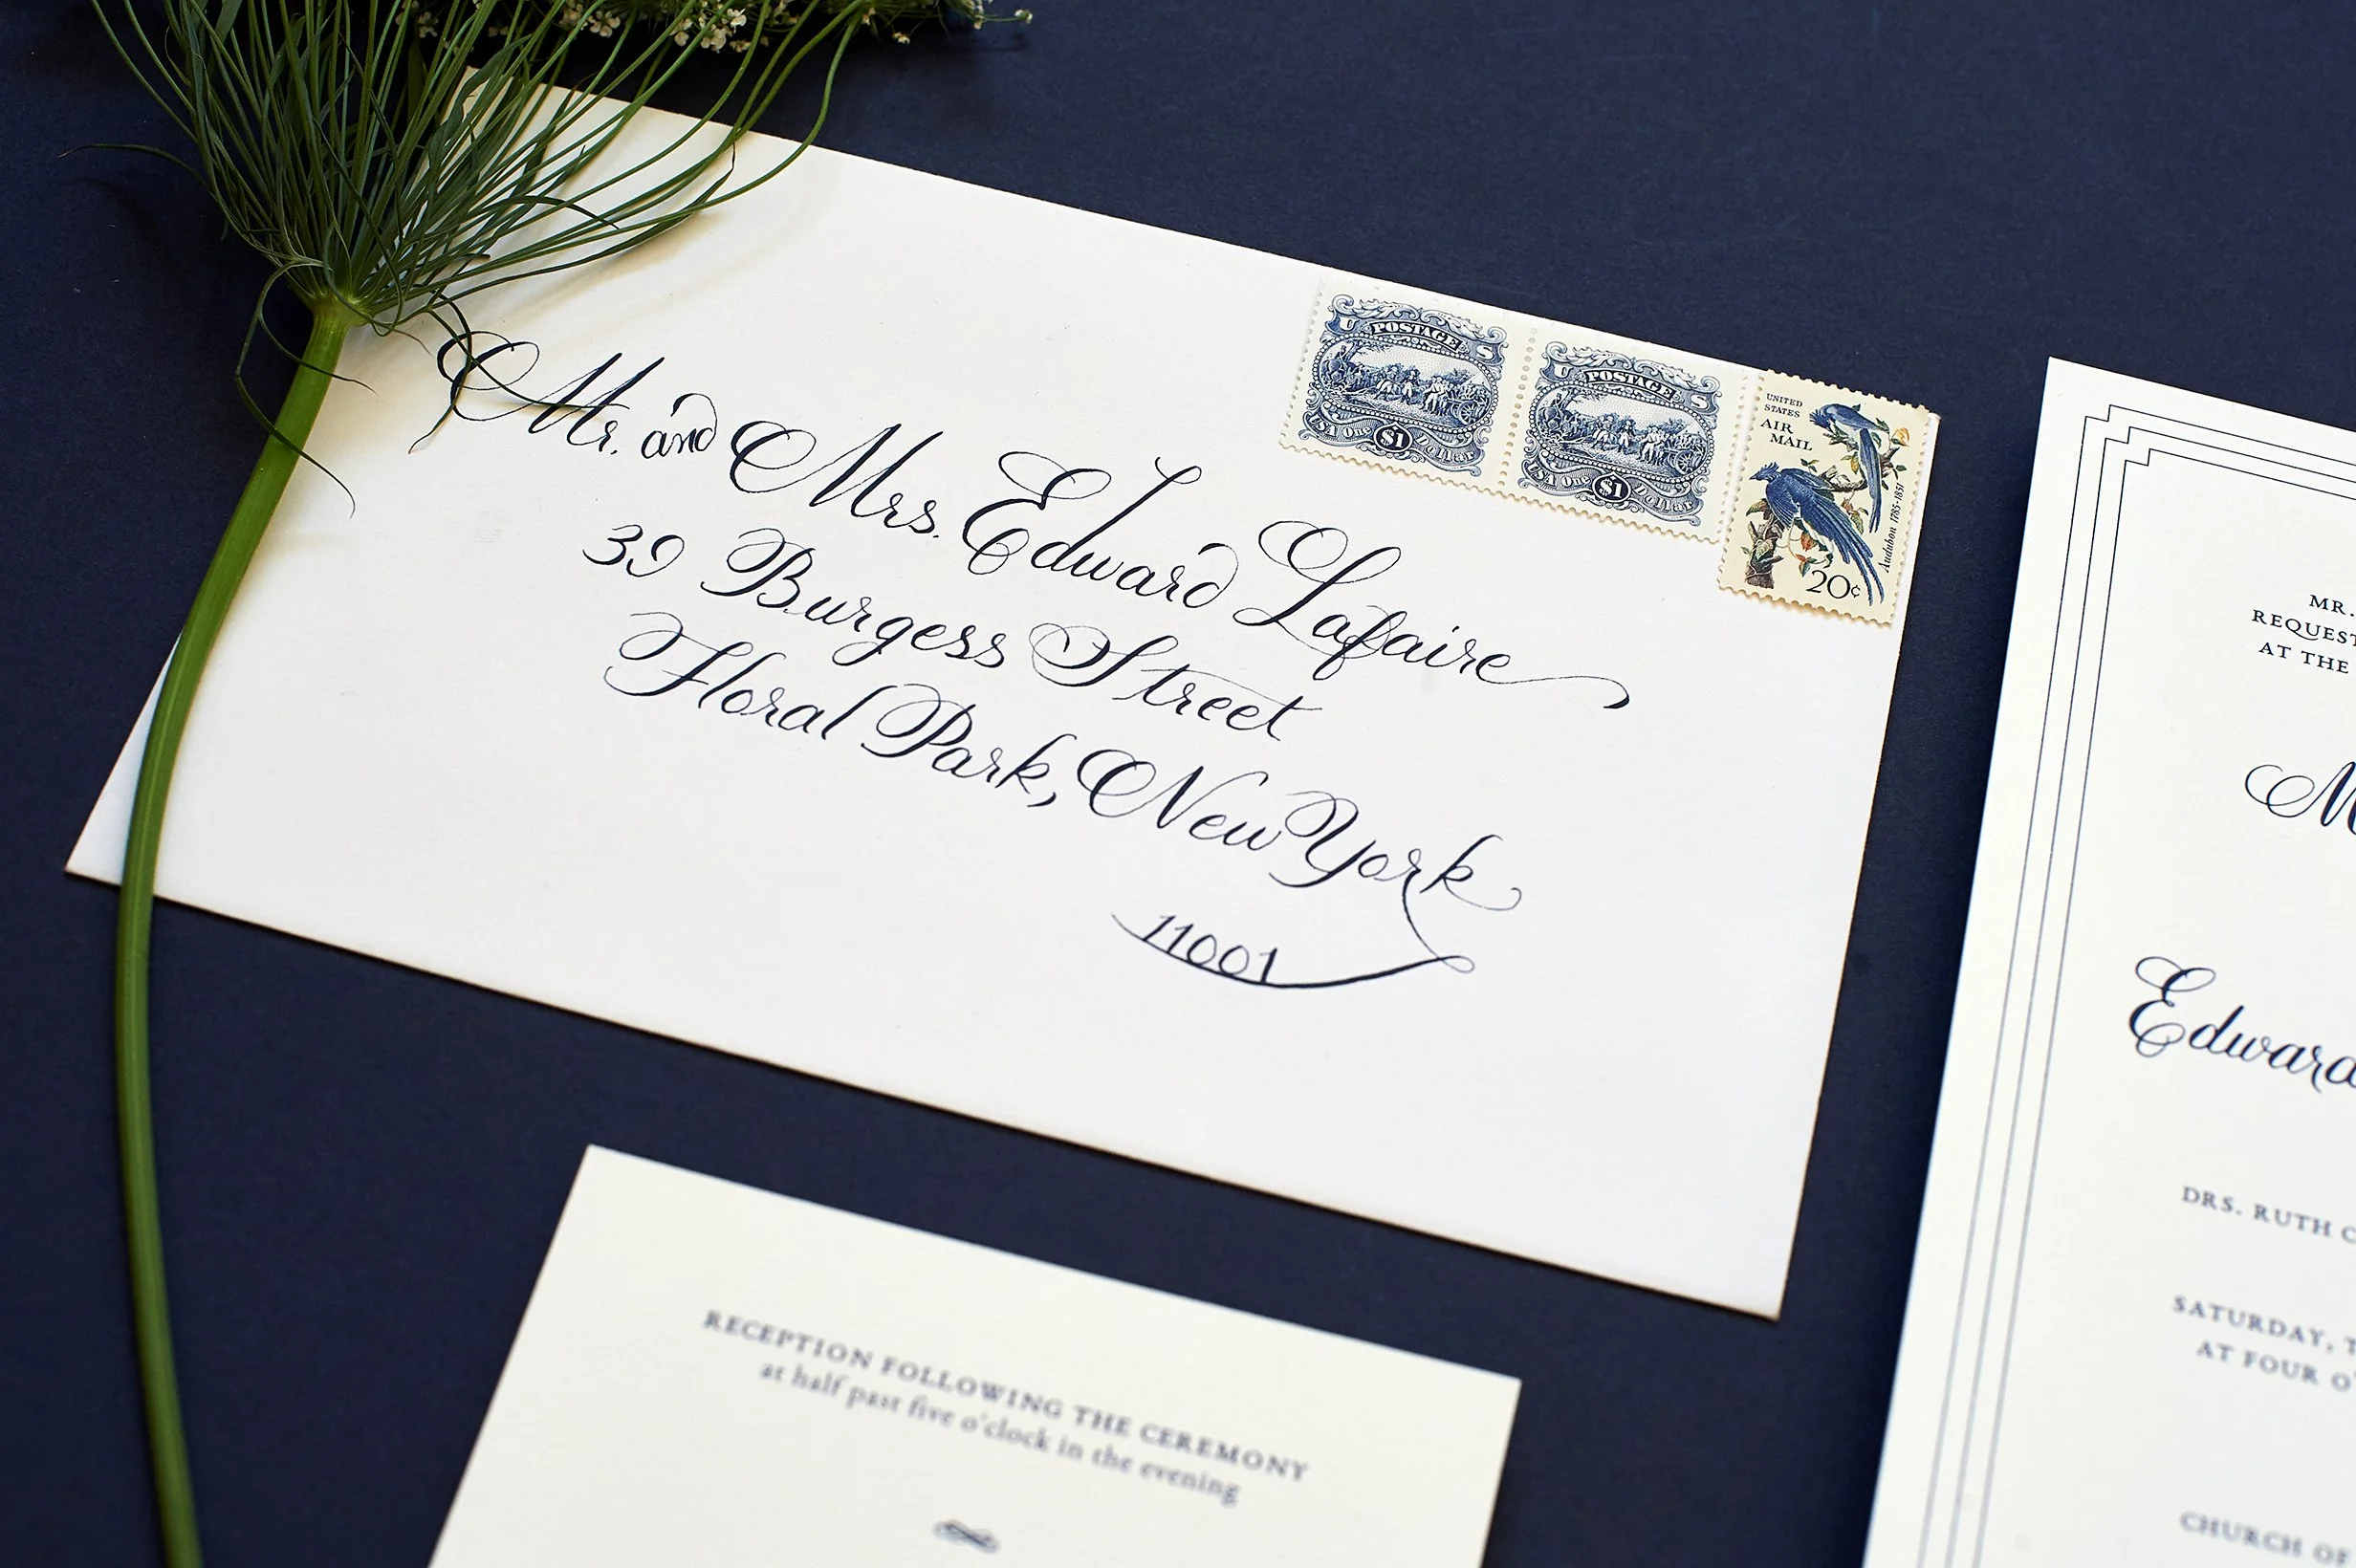 Mr. and Mrs. Edward Lafaire
39 Burgess Street
Floral Park, New York
11001
U POSTAGE S
USA One $1 Dollar
U POSTAGE S
USA One $1 Dollar
UNITED
STATES
AIR
MAIL
Audubon 1785-1851
20¢
RECEPTION FOLLOWING THE CEREMONY
at half past five o'clock in the evening
MR.
REQUEST
AT THE
M
Edward
DRS. RUTH
SATURDAY,
AT FOUR O'
CHURCH OF